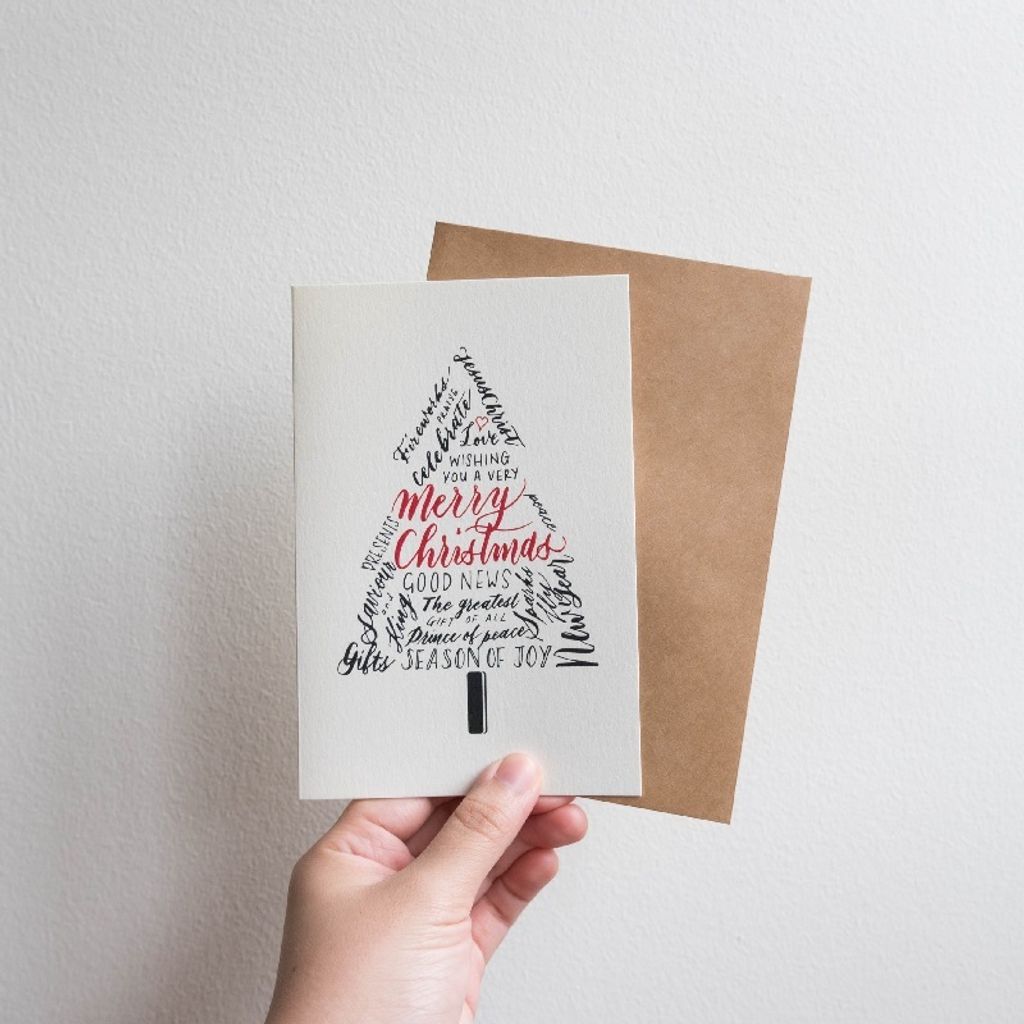 Jesus Christ
Fireworks!
PRAISE
celebrate
Love
WISHING
YOU A VERY
Merry
Christmas
peace
PRESENTS
Saviour
and
King
GOOD NEWS
The greatest
GIFT OF ALL
Prince of peace
Sparks
Fly
New Year
Gifts
SEASON OF JOY